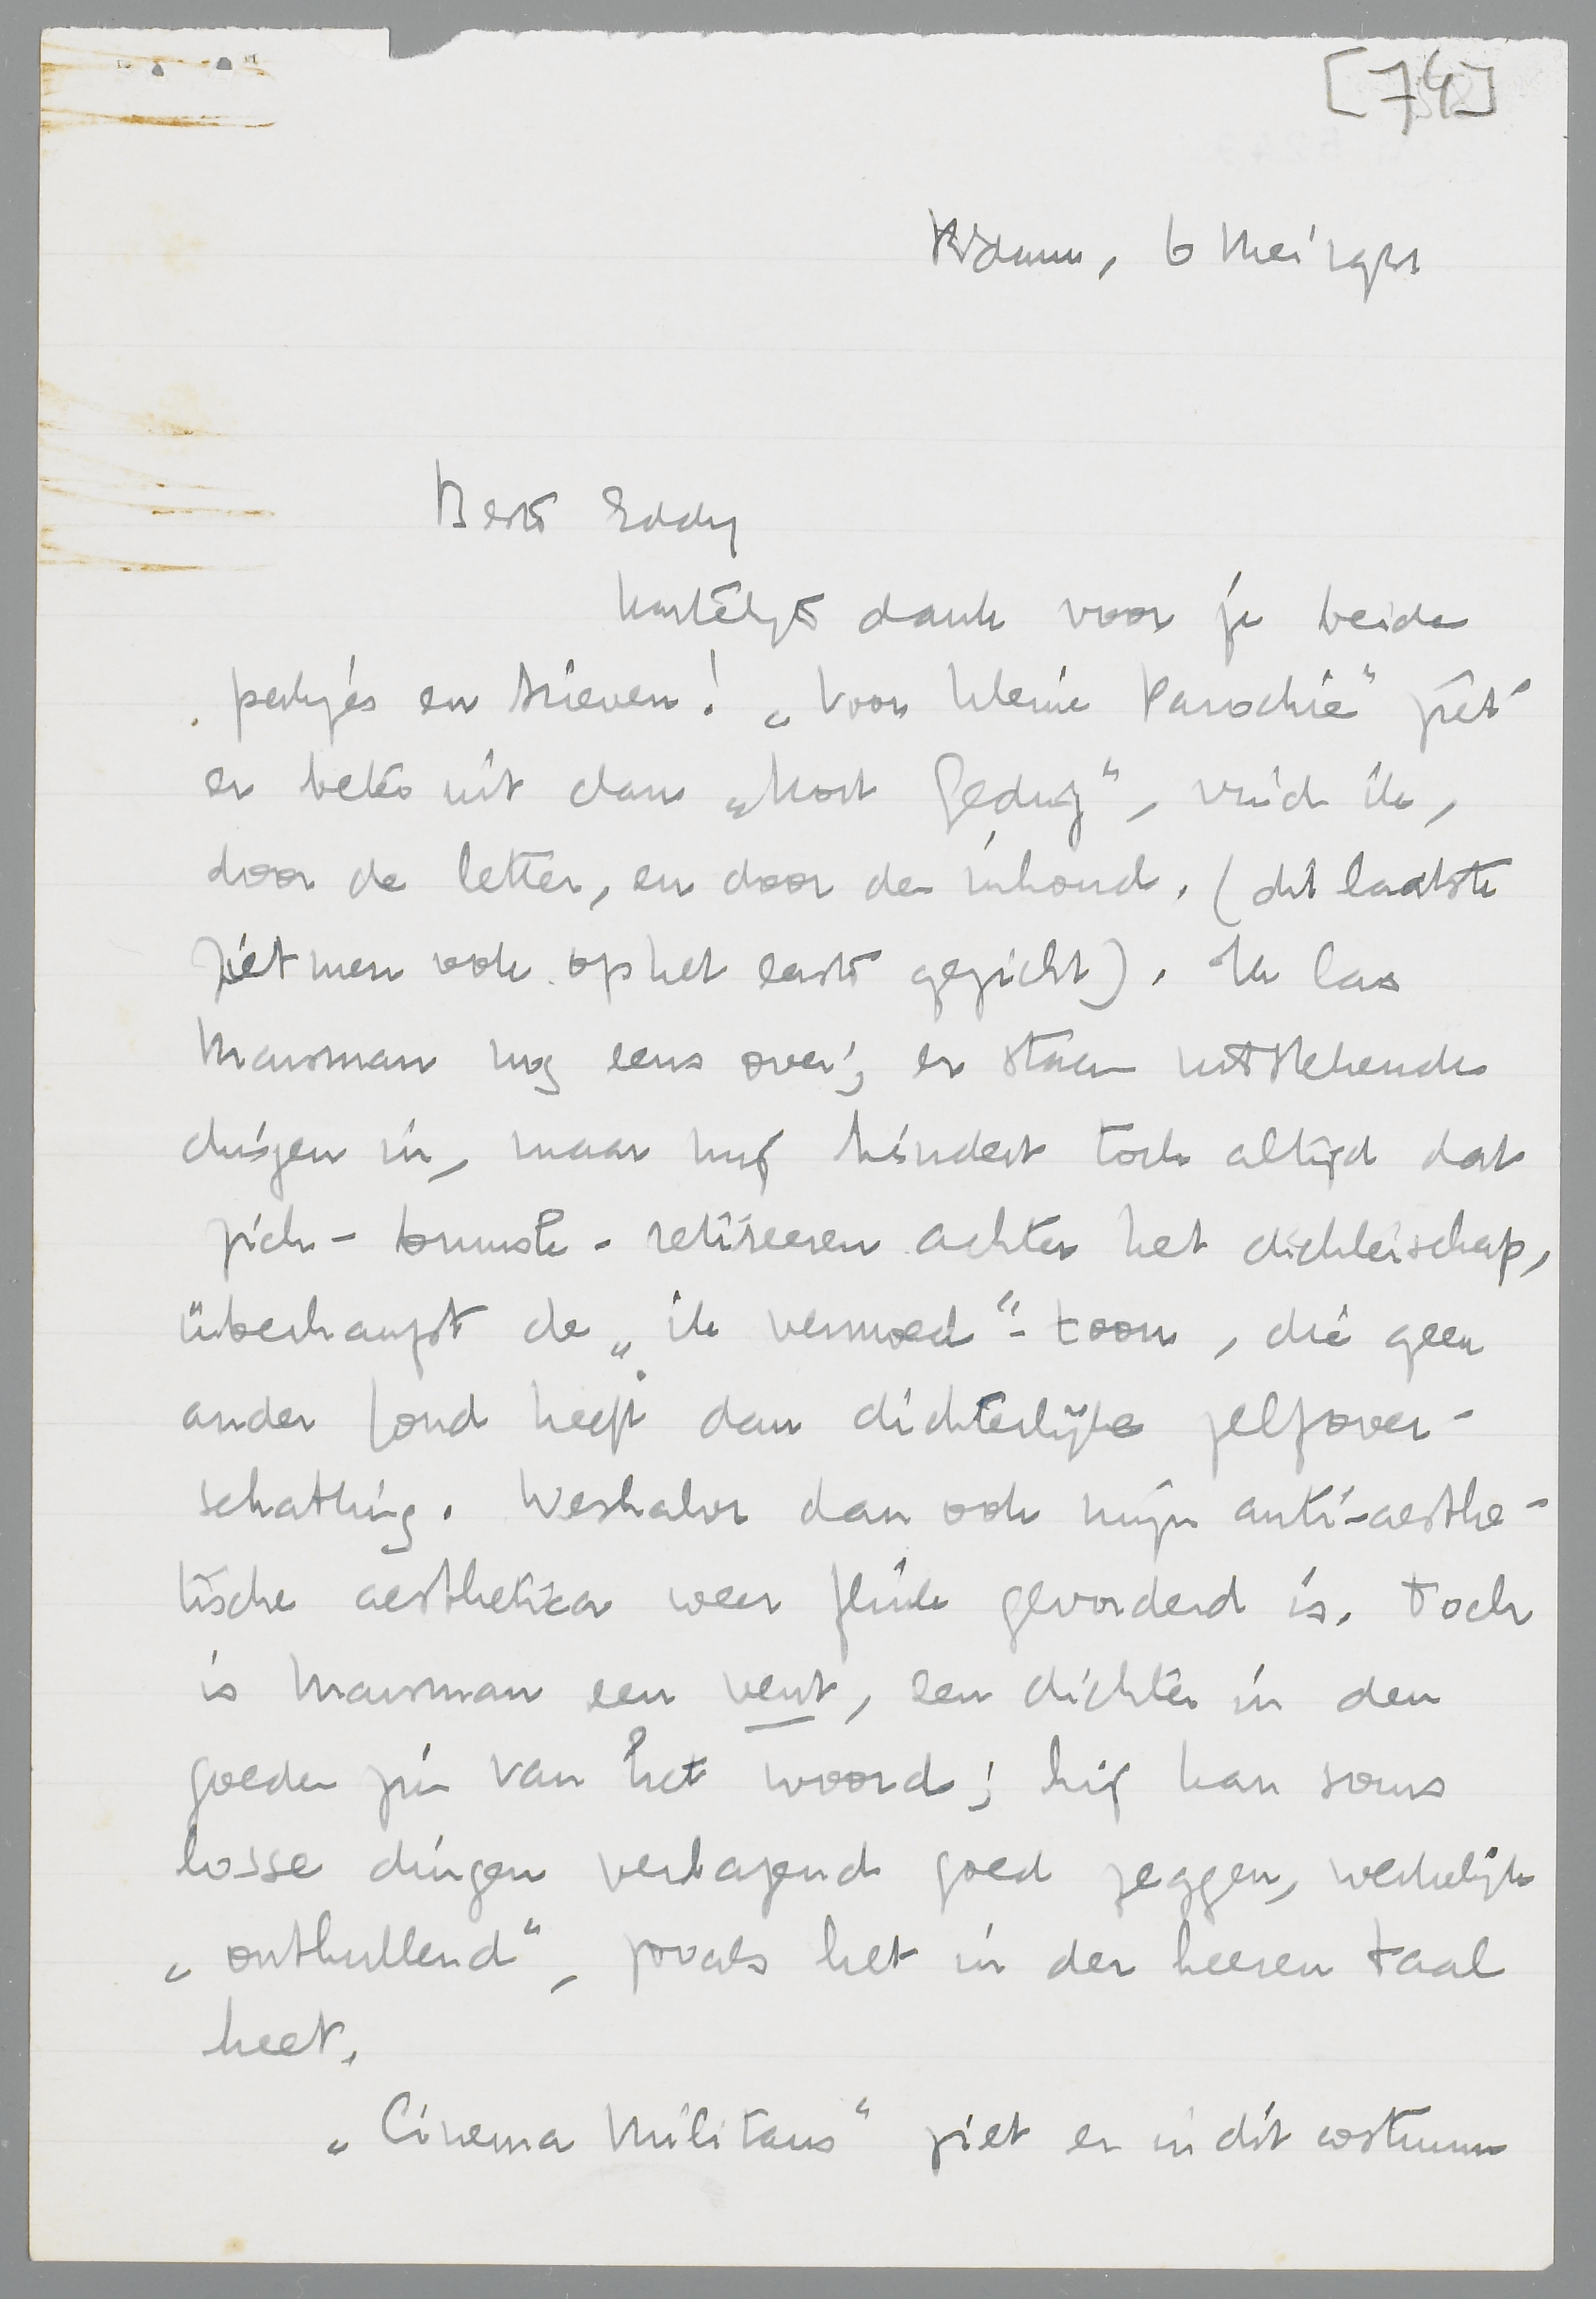 [74]
R'dam, 6 Mei 1931
Beste Eddy
hartelijk dank voor je beide
pakjes en brieven! „Voor kleine Parochie" ziet
er beter uit dan „Kort Geding", vind ik,
door de letter, en door den inhoud. (dit laatste
ziet men ook op het eerste gezicht). Ik las
Marsman nog eens over; er staan uitstekende
dingen in, maar mij hindert toch altijd dat
zich-bruusk-retireeren achter het dichterschap,
überhaupt de „ik vermoed"-toon, die geen
ander fond heeft dan dichterlijke zelfover-
schatting. Weshalve dan ook mijn anti-aesthe-
tische aesthetica weer flink gevorderd is. Toch
is Marsman een vent, een dichter in den
goeden zin van het woord; hij kan soms
losse dingen verbazend goed zeggen, werkelijk
„onthullend", zooals het in der heeren taal
heet.
„Cinema Militans" ziet er in dit costuum